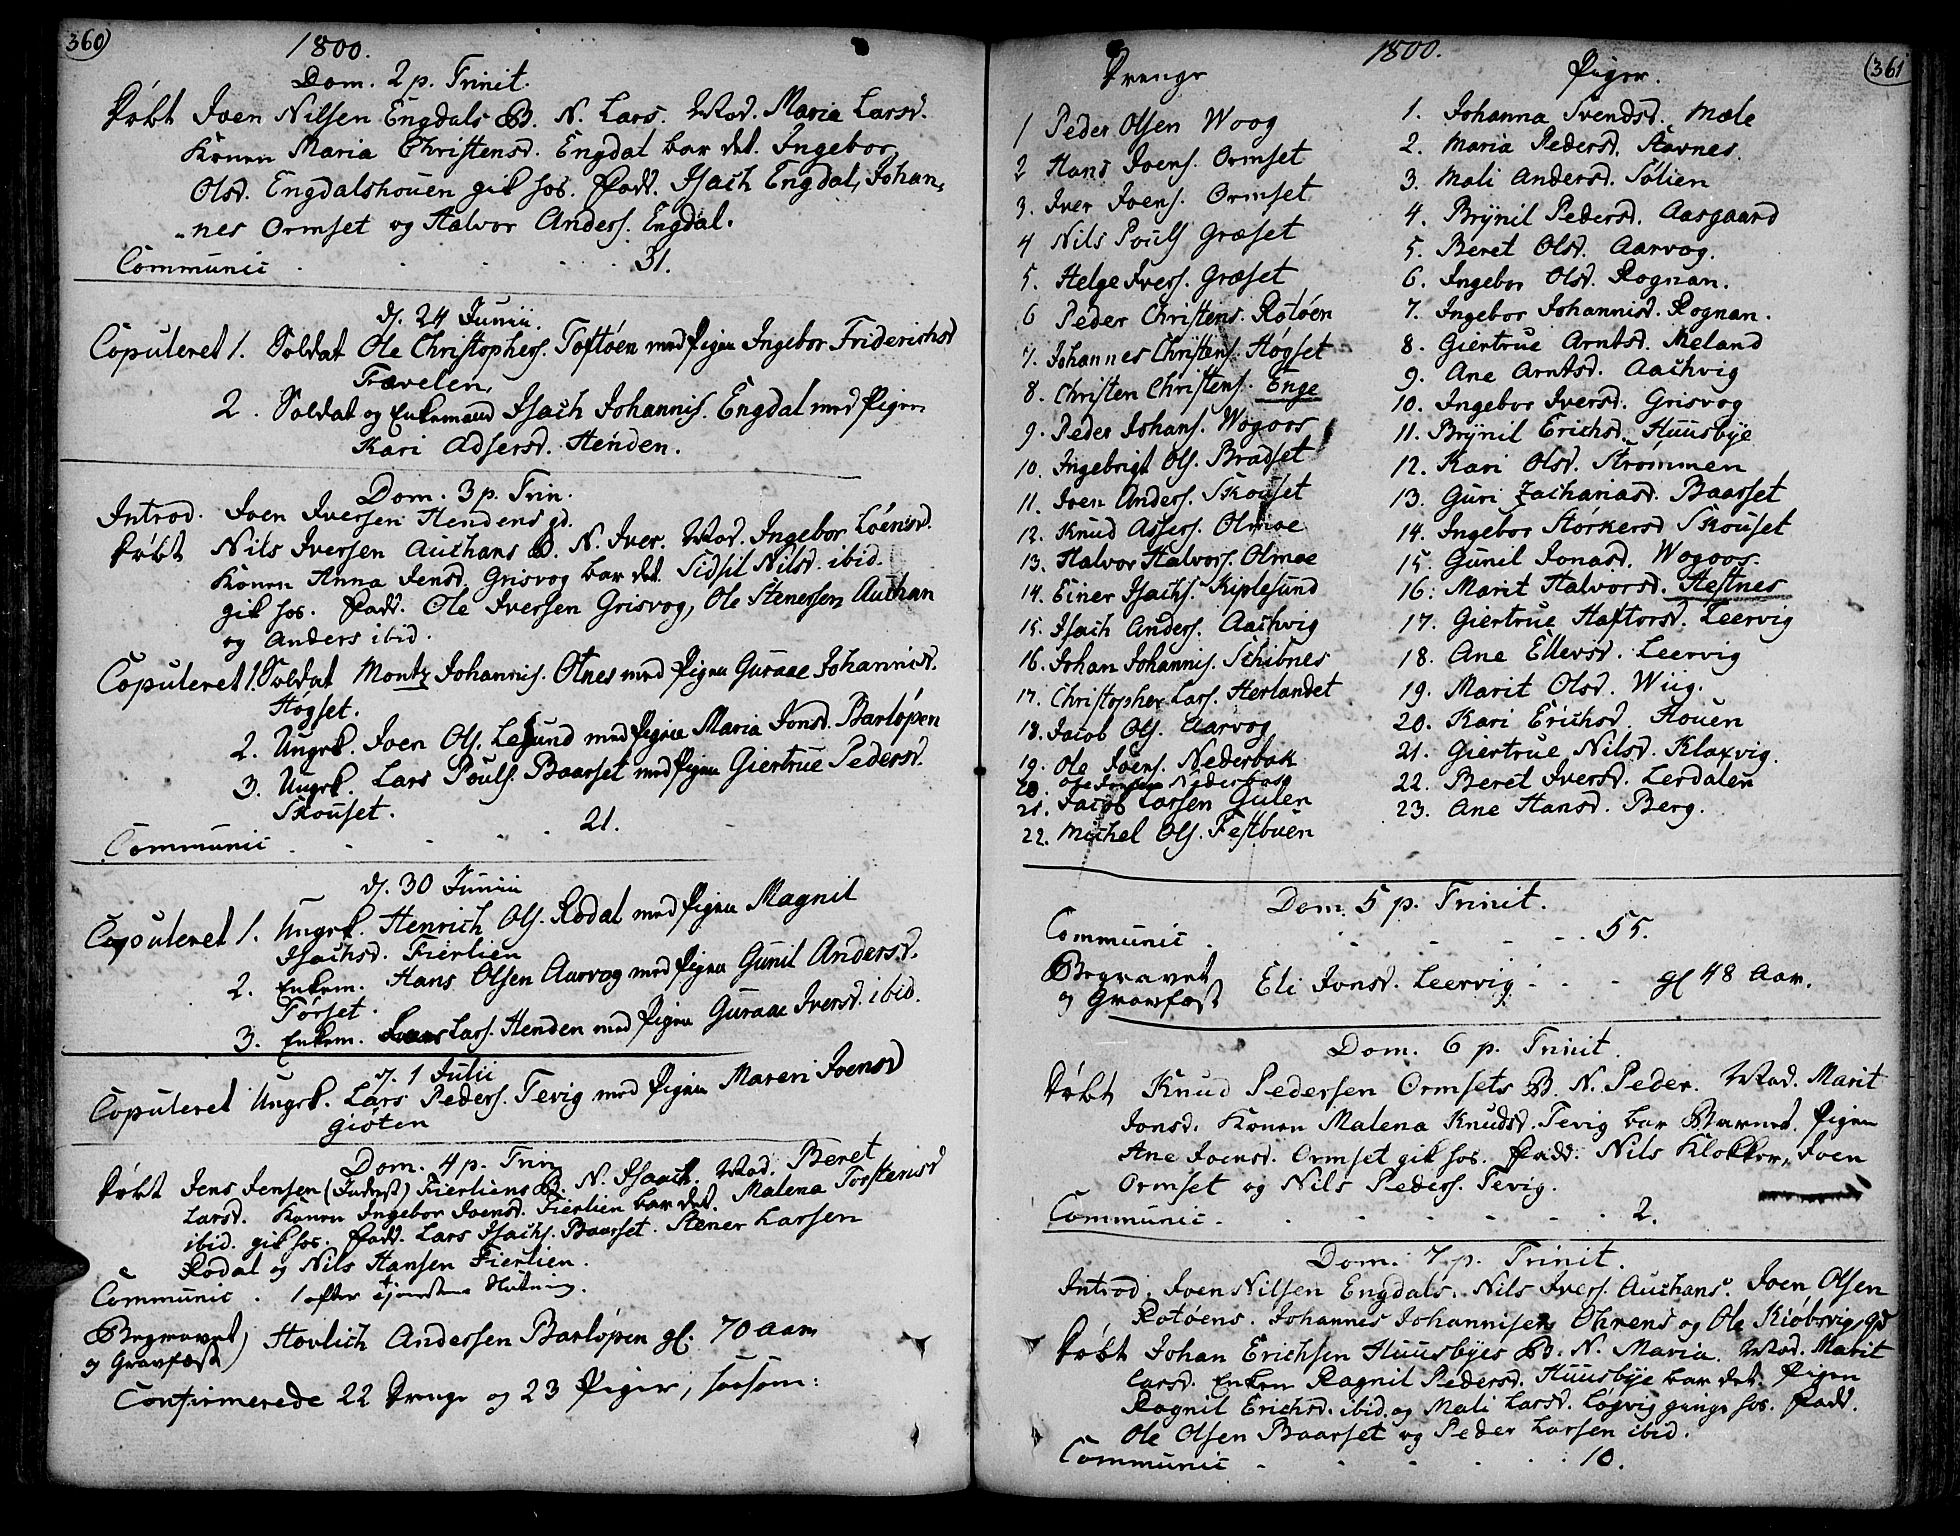 360)
1800.
Dom. 2 p. Trinit.
Døbt Joen Nilsen Engdals B. N. Lars. Mod. Maria Larsd.
Konen Maria Christensd. Engdal bar det. Ingebor
Olsd. Engdalshouen gik hos. Fadd. Isach Engdal, Johan-
nes Ormset og Halvor Anders. Engdal.
Communic . . . . . 31.
d. 24 Junii.
Copuleret 1. Soldat Ole Christophers. Toftøen med Pigen Ingebor Friderichsd
Trævelen.
2. Soldat og Enkemand Isach Johannis. Engdal med Pigen
Kari Adsersd. Henden.
Dom. 3 p. Trin.
Introd. Joen Iversen Hendens gd.
Døbt Nils Iversen Auchans B. N. Iver. Mod. Ingebor Loënsd.
Konen Anna Jensd. Grisvog bar det. Sidsil Nilsd. ibid.
gik hos. Fadd. Ole Iversen Grisvog, Ole Stenersen Auchan
og Anders ibid.
Copuleret 1. Soldat Montz Johannis. Otnes med Pigen Guraae Johannisd.
Høgset.
2. Ungk. Joen Ols. Lesund med Pigen Maria Jonsd. Barløpen
3. Ungk. Lars Pouls. Baarset med Pigen Giertrue Pedersd.
Skouset.
Communic . . . . 21.
d. 30 Junii
Copuleret 1. Ungk. Henrich Ols. Rodal med Pigen Magnil
Isachsd. Fierlien
2. Enkem. Hans Olsen Aarvog med Pigen Gunil Andersd.
Førset.
3. Enkem. Lars. Henden med Pigen Guraae Iversd. ibid.
d. 1 Julii
Copuleret Ungk. Lars Peders. Tevig med Pigen Maren Joensd
Giøten
Dom. 4 p. Trin
Døbt Jens Jensen Fierliens B. N. Isach. Mod. Beret
Larsd. Konen Ingebor Joensd. Fierlien bar det. Malena Torstensd
ibid. gik hos. Fadd. Lars Isachs. Baarset. Stener Larsen
Rodal og Nils Hansen Fierlien.
Communic . 1 efter tjenestens Slutning.
Begravet) Hovlich Andersen Barløpen gl. 70 Aar
og Gravfæst)
Confirmerede 22 Drenge og 23 Piger, saasom:
(361
1800.
Drenge
1 Peder Olsen Woog
2 Hans Joens. Ormset
3. Iver Joens. Ormset
4 Nils Pouls Græset
5. Helge Ivers. Græset
6 Peder Christens. Rotøen
7. Johannes Christens. Høgset
8. Christen Christens. Enge
9. Peder Johans. Wogoos
10. Ingebrigt Ols. Bradset
11. Joen Anders. Skouset
12. Knud Assers. Olmoe
13. Halvor Halvors. Olmoe
14. Einer Isachs. Kiplesund
15. Isach Anders. Aachvig
16. Johan Johannis. Schibnes
17. Christopher Lars. Herlandet
18. Jacob Ols. Aarvog
19. Ole Joens. Nederbak
20. Ole Nederbak
21. Jacob Larsen Gulen
22. Michel Ols. Festbuen
Piger.
1. Johanna Svendsd. Mæle
2. Maria Pedersd. Stavnes.
3. Mali Andersd. Solien
4. Brynil Pedersd. Aasgaard
5. Beret Olsd. Aarvog.
6. Ingebor Olsd. Rognan.
7. Ingebor Johannisd. Rognan.
8. Giertrue Arntsd. Meland
9. Ane Arntsd. Aachvig
10. Ingebor Iversd. Grisvog
11. Brynil Erichsd. Huusbye
12. Kari Olsd. Strommen
13. Guri Zachariasd. Baarset
14. Ingebor Størkersd Skouset
15. Gunil Jonasd. Wogoos.
16. Marit Halvorsd. Hestnes
17. Giertrue Haftorsd. Leervig
18. Ane Ellevsd. Leervig
19. Marit Olsd. Wiig.
20. Kari Erichsd. Houen
21. Giertrue Nilsd. Klaxvig.
22. Beret Iversd. Lerdalen
23. Ane Hansd. Berg.
Dom. 5 p. Trinit.
Communic . . . . . 55.
Begravet Eli Jonsd. Leervig . . . gl 48 Aar.
og Gravfæst
Dom. 6 p. Trinit.
Døbt Knud Pedersen Ormsets B. N. Peder. Mod. Marit
Jonsd. Konen Malena Knudsd. Tevig bar Barnet. Pigen
Ane Joensd. Ormset gik hos. Fadd. Nils Klokker, Joen
Ormset og Nils Peders. Tevig.
Communic . . . . . . 2.
Dom. 7 p. Trinit.
Introd. Joen Nilsen Engdals. Nils Ivers. Auchans. Joen Olsen
Rotøens. Johannes Johannisens Ohrens og Ole Kiøbsvigs gd
Døbt Johan Erichsen Huusbyes B. N. Maria. Mod. Marit
Larsd. Enken Ragnil Pedersd. Huusbye bar det. Pigen
Ragnil Erichsd. ibid. og Mali Larsd. Løgvig ginge hos. Fadd.
Ole Olsen Baarset og Peder Larsen ibid.
Communic . . . . . 10.